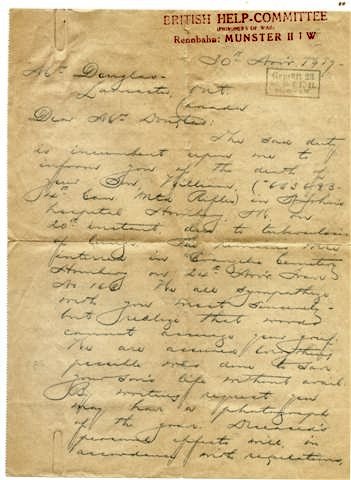 BRITISH HELP-COMMITTEE
(PRISONERS OF WAR)
Rennbahn: MUNSTER II I W
30th Nov. 1917.
Mr. Douglas.
Lancaster, Ont.
Canada
Dear Mr. Douglas:
The sad duty
is incumbent upon me to
inform you of the death of
your Son, William, (
4th Can Mtd Rifles) in St John's
hospital on
20th instant, due to tuberculosis
of lungs. The remains were
interred in Evangelic Cemetery
on 24th Nov.
No 166. We all sympathize
with you most sincerely.
but realize that words
cannot assuage your grief.
We are assured everything
possible was done to save
your son's life without avail.
By writing request you
may have a photograph
of the grave. Deceased's
personal effects will, in
accordance with regulations,